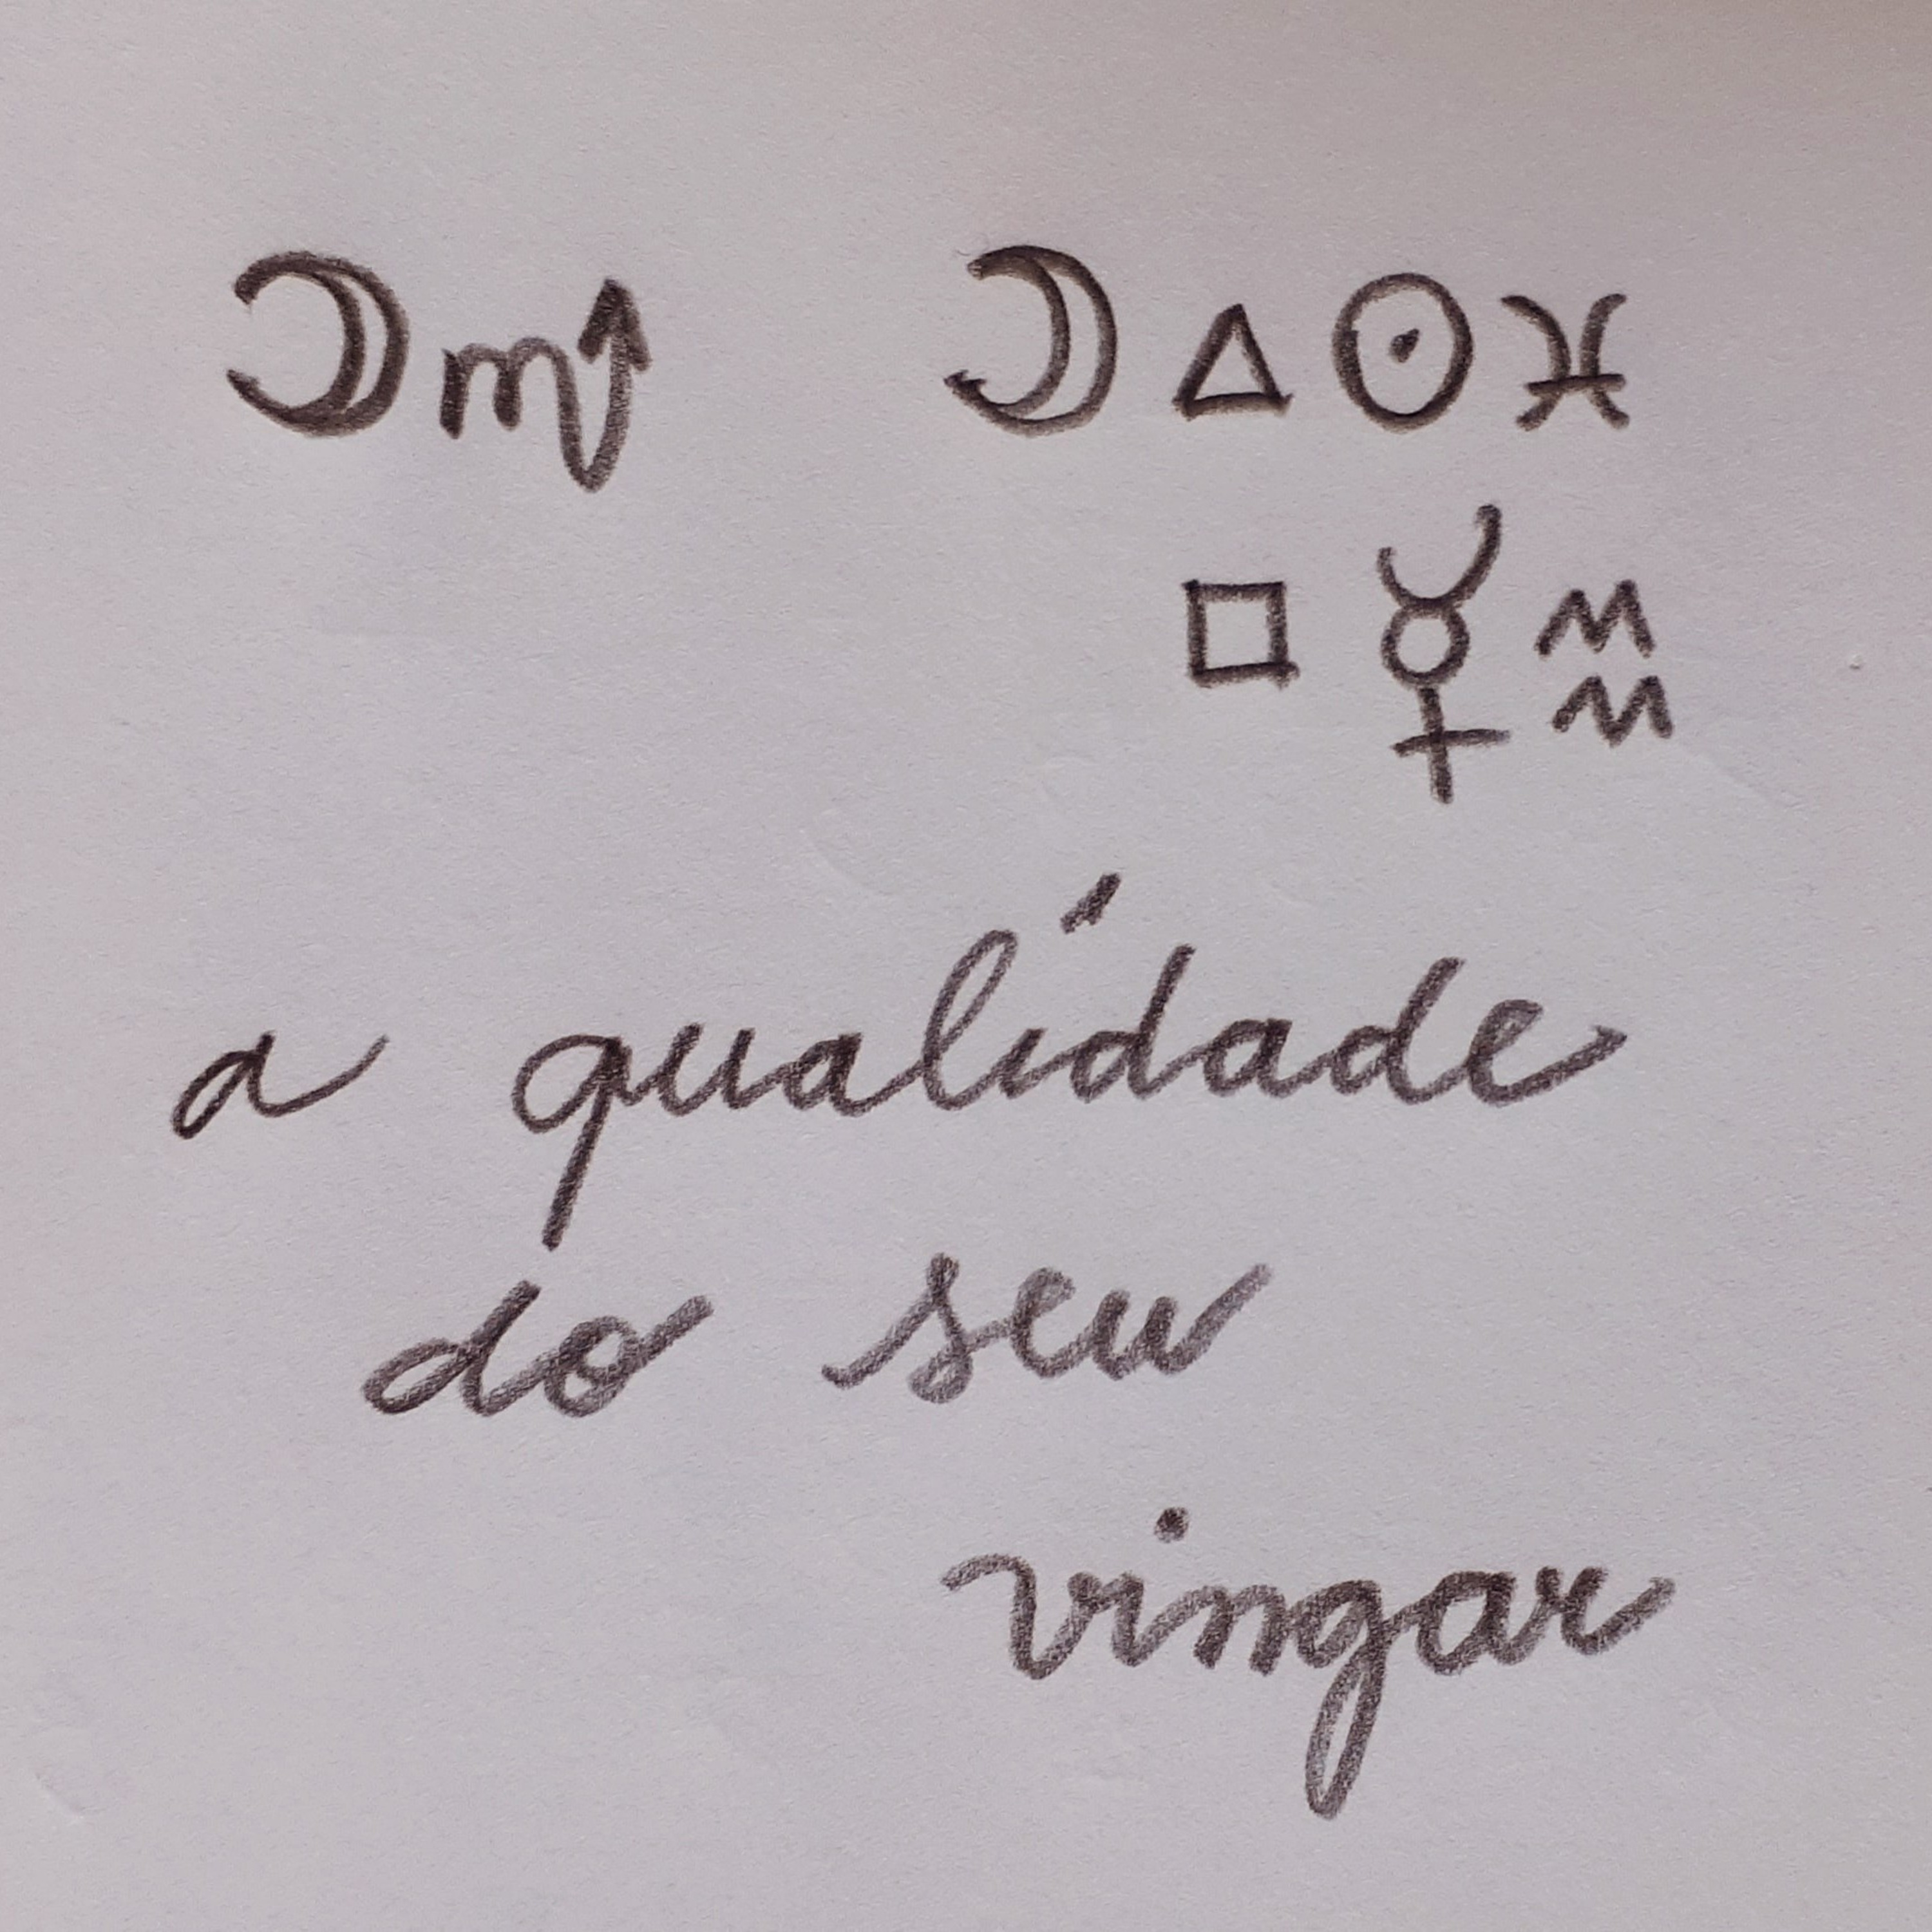 ☽♏ ☽△☉♓
□☿♒
a qualidade
do seu
vingar